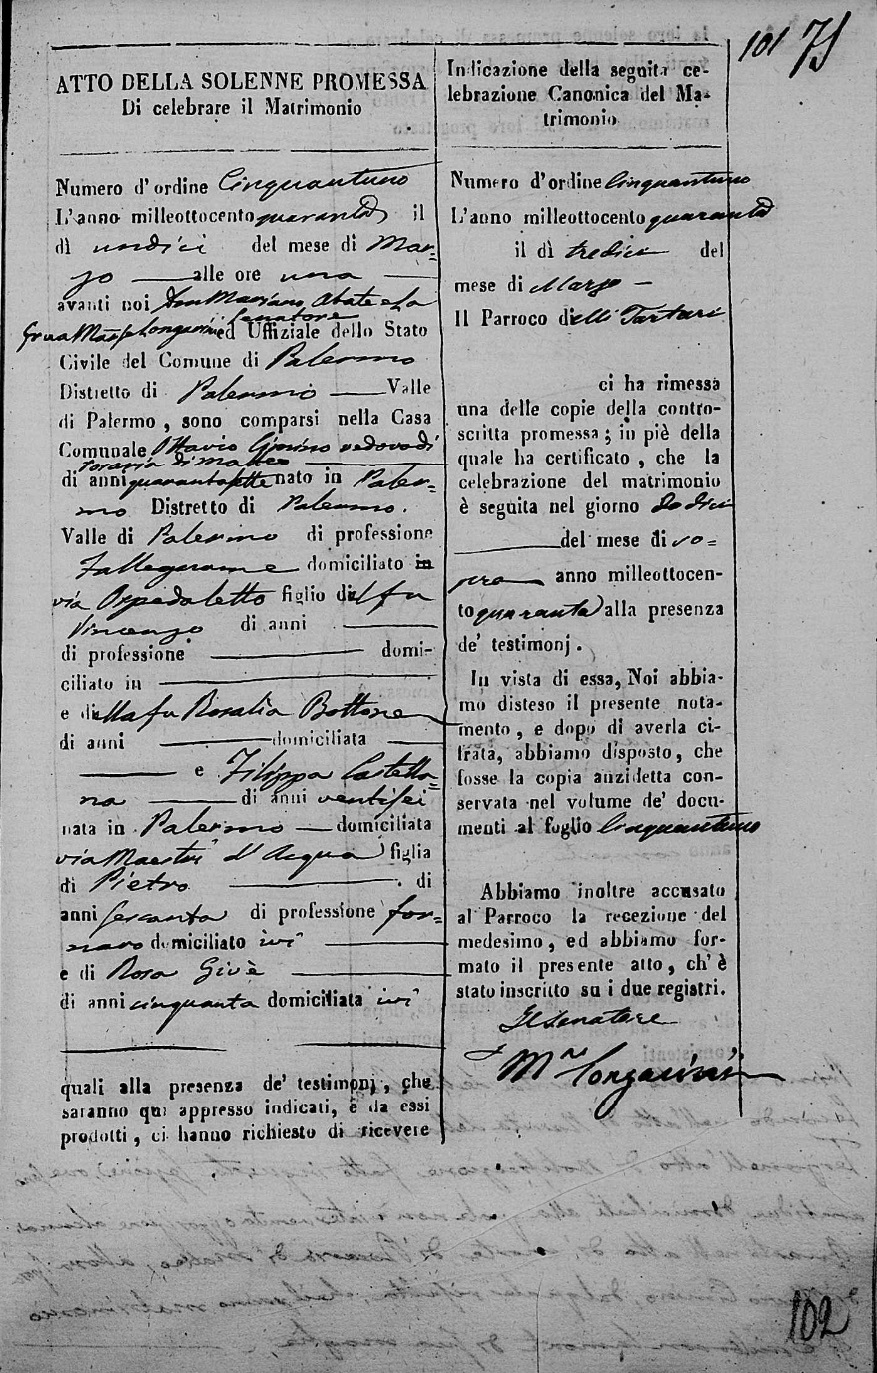 101 75
ATTO DELLA SOLENNE PROMESSA
Di celebrare il Matrimonio
Numero d'ordine Cinquantuno
L'anno milleottocento quaranta il
dì undici del mese di Mar=
zo alle ore una
avanti noi Don Mariano Abate e La
Grua Marse Longarini Senatore ed Uffiziale dello Stato
Civile del Comune di Palermo
Distretto di Palermo Valle
di Palermo, sono comparsi nella Casa
Comunale Ottavio vedovo di
di Matteo
di anni quarantasette nato in Paler=
mo Distretto di Palermo.
Valle di Palermo di professione
Fallegname domiciliato in
via Ospedaletto figlio del fu
Vincenzo di anni
di professione domi-
ciliato in
e della fu Rosalia Bottone
di anni domiciliata
e Filippa Castella=
na di anni ventisei
nata in Palermo domiciliata
via Maestri d'Acqua figlia
di Pietro . di
anni sessanta di professione for=
naro domiciliato ivi
e di Rosa Givè
di anni cinquanta domiciliata ivi
quali alla presenza de' testimonj, che
saranno qui appresso indicati, e da essi
prodotti, ci hanno richiesto di ricevere
Indicazione della seguita ce-
lebrazione Canonica del Ma-
trimonio
Numero d'ordine Cinquantuno
L'anno milleottocento quaranta
il dì tredici del
mese di Marzo
Il Parroco delli Tartari
ci ha rimessa
una delle copie della contro-
scritta promessa; in piè della
quale ha certificato, che la
celebrazione del matrimonio
è seguita nel giorno dodici
del mese di so=
pra anno milleottocen-
to quaranta alla presenza
de' testimonj.
In vista di essa, Noi abbia-
mo disteso il presente nota-
mento, e dopo di averla ci-
frata, abbiamo disposto, che
fosse la copia anzidetta con-
servata nel volume de' docu-
menti al foglio Cinquantuno
Abbiamo inoltre accusato
al Parroco la recezione del
medesimo, ed abbiamo for-
mato il presente atto, ch'è
stato inscritto su i due registri.
Il Senatore
Mse Longarini
102